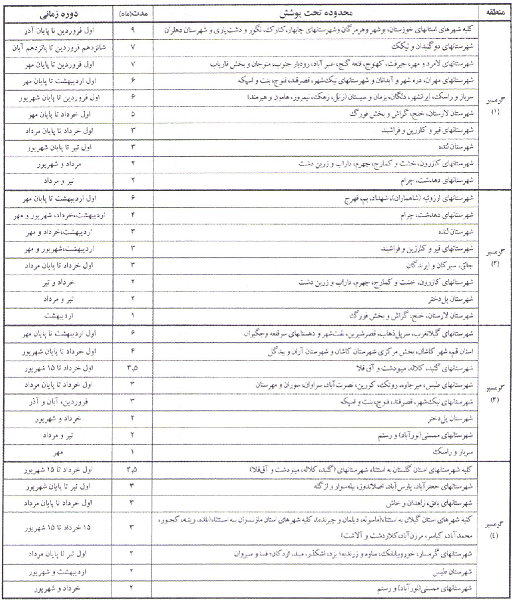 منطقه محدوده تحت پوشش مدت(ماه) دوره زمانی
گرمسیر (۱)
کلیه شهرهای استانهای خوزستان، بوشهر وهرمزگان وشهرستانهای چابهار، کنارک، نگور و دشت‌یاری و شهرستان دهلران ۹ اول فروردین تا پایان آذر
شهرستانهای دوگنبدان و لیکک ۷ شانزدهم فروردین تا پانزدهم آبان
شهرستانهای لامرد و مهر، جیرفت، کهنوج، قلعه گنج، عنبر آباد، رودبار جنوب، منوجان و بخش فاریاب ۷ اول فروردین تا پایان مهر
شهرستانهای مهران، دره شهر و آبدانان و شهرستانهای نیک‌شهر، قصرقند، فنوج، بنت و اسپکه ۶ اول اردیبهشت تا پایان مهر
سرباز و راسک، ایرانشهر، دلگان، بزمان و سیستان (زابل، زهک، نیمروز، هامون و هیرمند) ۶ اول فروردین تا پایان شهریور
شهرستان لارستان، خنج، گراش و بخش فورگ ۵ اول خرداد تا پایان مهر
شهرستانهای قیر و کارزین و فراشبند ۳ اول خرداد تا پایان مرداد
شهرستان لنده ۳ اول تیر تا پایان شهریور
شهرستانهای کازرون، خشت و کمارج، جهرم، داراب و زرین دشت ۲ مرداد و شهریور
شهرستانهای دهدشت، چرام ۲ تیر و مرداد
گرمسیر (۲)
شهرستانهای ارزوئیه (شاهماران)، شهداد، بم، فهرج ۶ اول اردیبهشت تا پایان مهر
شهرستانهای دهدشت، چرام ۴ اردیبهشت،خرداد، شهریور و مهر
شهرستان لنده ۳ اردیبهشت،خرداد و مهر
شهرستانهای قیر و کارزین و فراشبند ۳ اردیبهشت،شهریور و مهر
جالق، سیرکان و ایرندگان ۳ اول خرداد تا پایان مرداد
شهرستانهای کازرون، خشت و کمارج، جهرم، داراب و زرین دشت ۲ خرداد و تیر
شهرستان پل‌دختر ۲ تیر و مرداد
شهرستان لارستان، خنج، گراش و بخش فورگ ۱ اردیبهشت
گرمسیر (۳)
شهرستانهای گیلانغرب، سرپل‌ذهاب، قصرشیرین، نفت‌شهر و دهستانهای سرقلعه وجگیران ۶ اول اردیبهشت تا پایان مهر
استان قم، شهر کاشان، بخش مرکزی شهرستان کاشان و شهرستان آران و بیدگل ۴ اول خرداد تا پایان شهریور
شهرستانهای گنبد، کلاله، مینودشت و آق قلا ۳٫۵ اول خرداد تا ۱۵ شهریور
شهرستانهای طبس، میرجاوه، رونک، کورین، نصرت‌آباد، سراوان، سوران و مهرستان ۳ اول خرداد تا پایان مرداد
شهرستانهای نیک‌شهر، قصرقند، فنوج، بنت و اسپکه ۳ فروردین، آبان و آذر
شهرستان پل‌دختر ۲ خرداد و شهریور
شهرستانهای ممسنی(نورآباد) و رستم ۲ تیر و مرداد
سرباز و راسک ۱ مهر
گرمسیر (۴)
کلیه شهرستانهای استان گلستان به استثناء شهرستانهای (گنبد، کلاله، مینودشت و آق‌قلا) ۳٫۵ اول خرداد تا ۱۵ شهریور
شهرستانهای جعفرآباد، پارس‌آباد، اصلاندوز، بیله‌سوار و انزگله ۳ اول تیر تا پایان شهریور
شهرستانهای بافق، زاهدان و خاش ۳ اول خرداد تا پایان مرداد
کلیه شهرهای استان گیلان به استثناء(ماسوله، دیلمان و جیرنده)، کلیه شهرهای استان مازندران به استثناء(بلده، رینه، کجور، محمدآباد، کیاسر، مرزن‌آباد،کلاردشت و آلاشت) ۳ ۱۵ خرداد تا ۱۵ شهریور
شهرستانهای گرمسار، خوروبیابانک، ساوه و زرندیه، یزد، اشکذر، میبد، اردکان، فسا و سروان ۲ اول تیر تا پایان مرداد
شهرستان طبس ۲ اردیبهشت و شهریور
شهرستانهای ممسنی(نورآباد) و رستم ۲ خرداد و شهریور